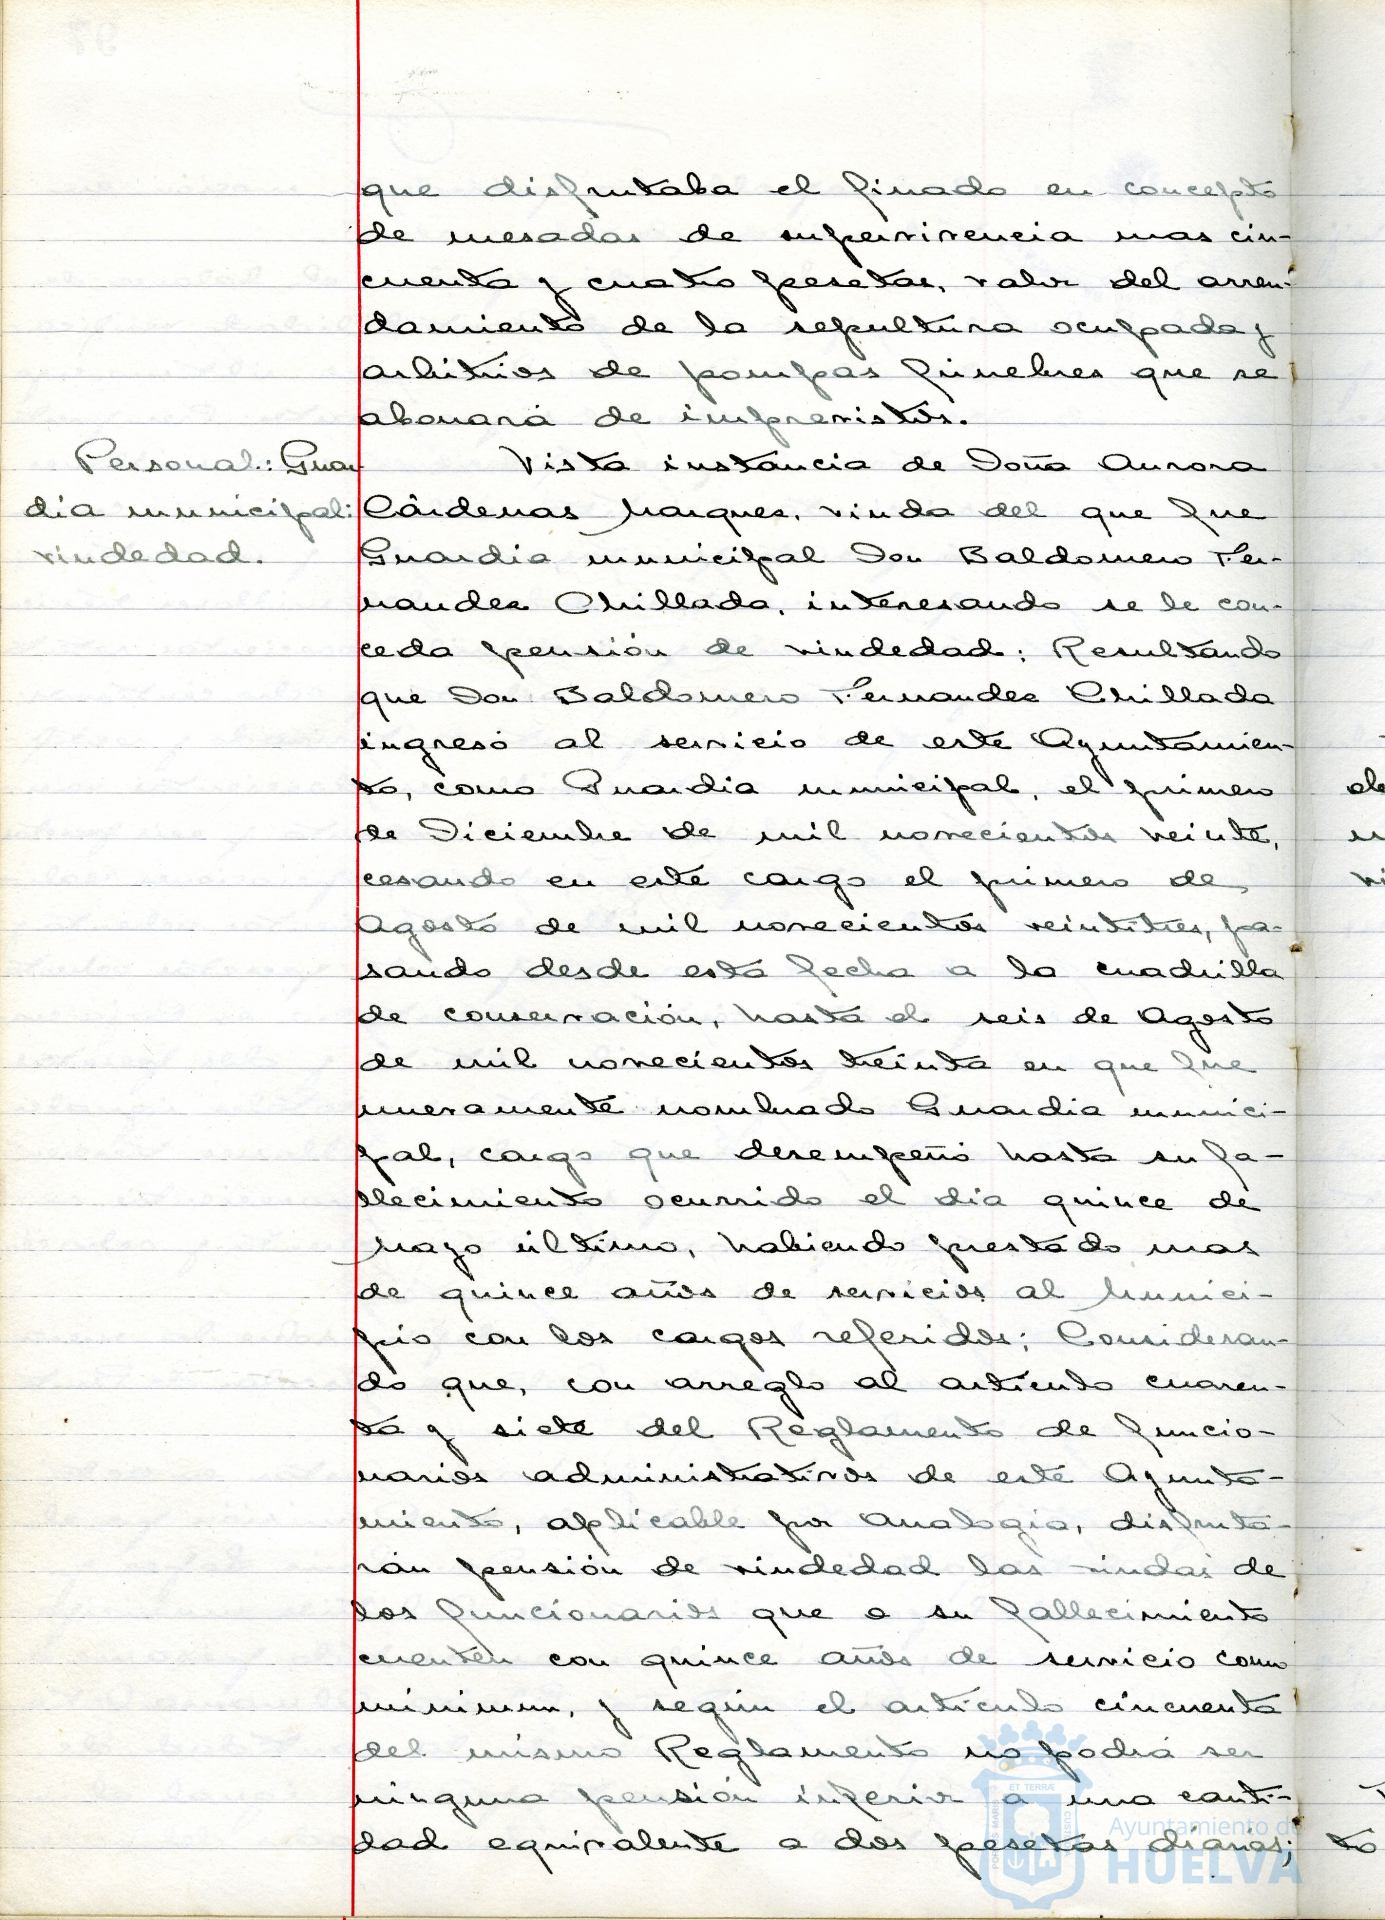 que disfrutaba el finado en concepto
de mesadas de supervivencia mas cin-
cuenta y cuatro pesetas, valor del arren-
damiento de la sepultura ocupada y
arbitrios de pompas fúnebres que se
abonará de imprevistos.
Personal: Guar
dia municipal:
viudedad.
Vista instancia de Doña Aurora
Cárdenas Marques, viuda del que fue
Guardia municipal Don Baldomero Fer-
nandez Chillada, interesando se le con-
ceda pensión de viudedad; Resultando
que Don Baldomero Fernandez Chillada
ingresó al servicio de este Ayuntamien-
to, como Guardia municipal, el primero
de Diciembre de mil novecientos veinte,
cesando en este cargo el primero de
Agosto de mil novecientos veintitres, pa-
sando desde esta fecha a la cuadrilla
de conservación, hasta el seis de Agosto
de mil novecientos treinta en que fue
nuevamente nombrado Guardia munici-
pal, cargo que desempeñó hasta su fa-
llecimiento ocurrido el dia quince de
Mayo último, habiendo prestado mas
de quince años de servicios al Munici-
pio con los cargos referidos; Consideran-
do que, con arreglo al artículo cuaren-
ta y siete del Reglamento de funcio-
narios administrativos de este Ayunta-
miento, aplicable por analogia, disfruta-
rán pensión de viudedad las viudas de
los funcionarios que a su fallecimiento
cuenten con quince años de servicio como
mínimum, y según el artículo cincuenta
del mismo Reglamento no podrá ser
ninguna pensión inferior a una canti-
dad equivalente a dos pesetas diarias;
Ayuntamiento de
HUELVA